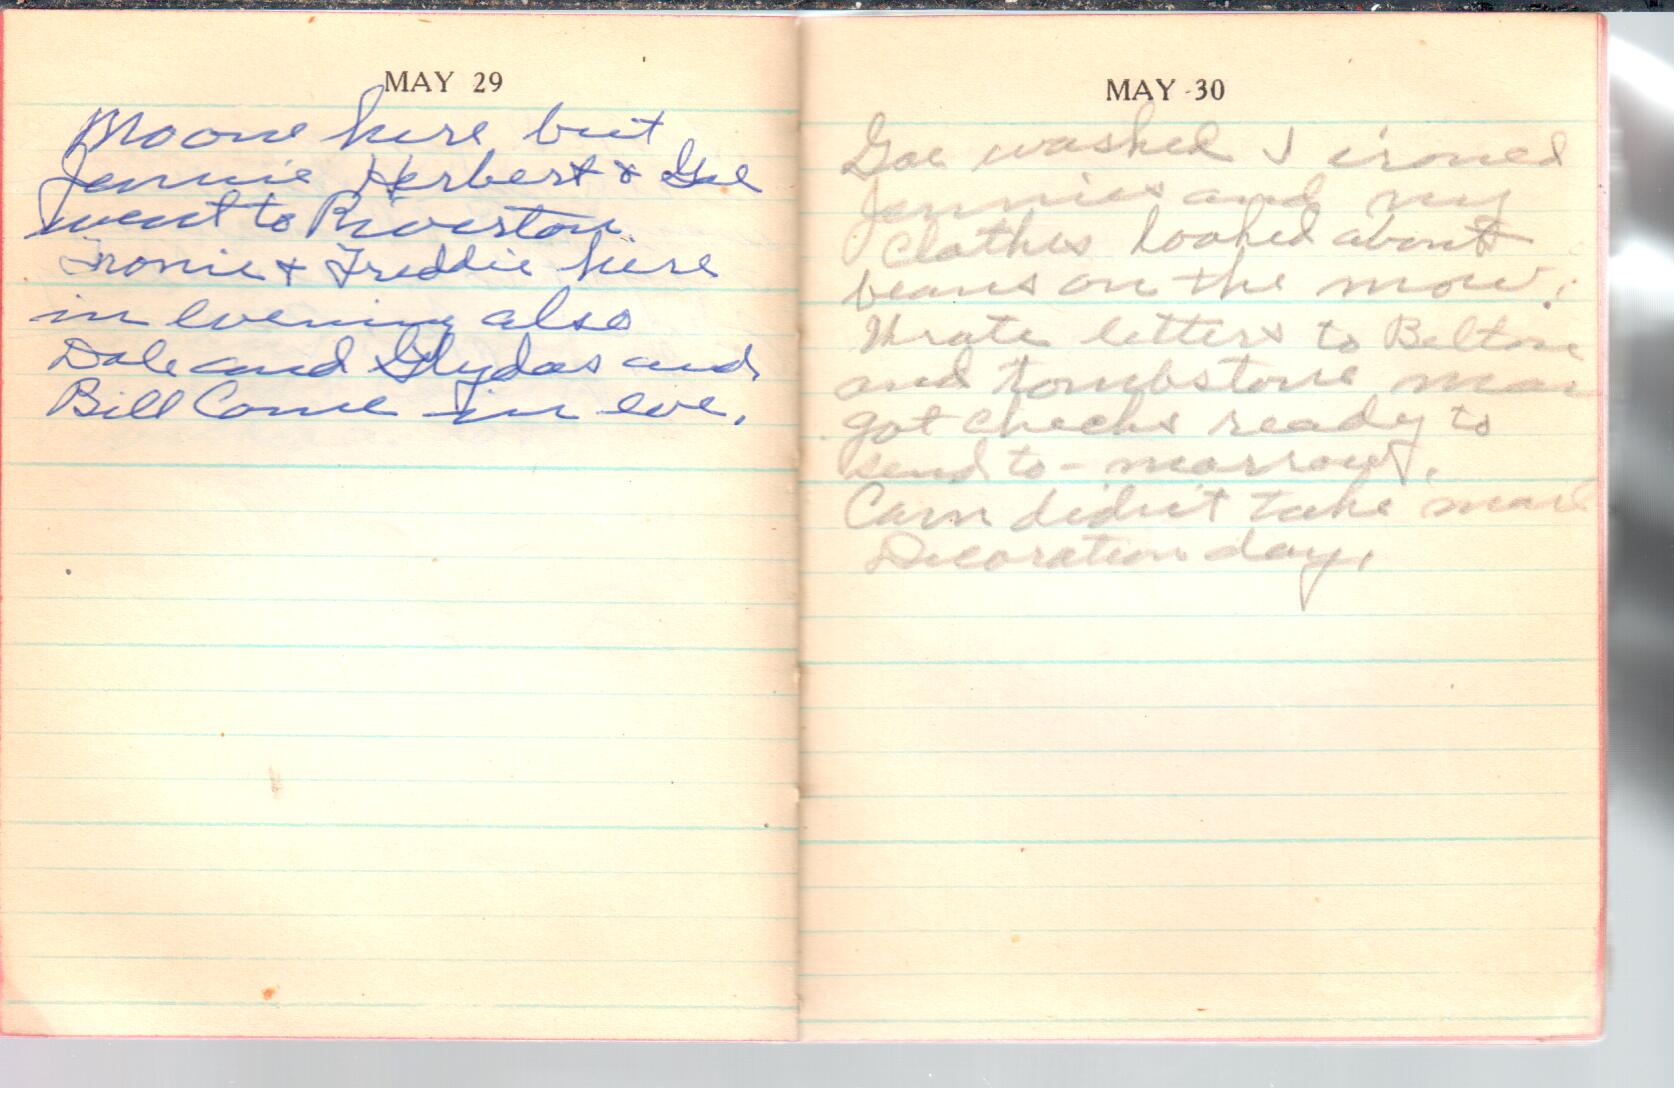 MAY 29
Moore here but
Jennie Herbert & Gae
went to Riverton
Fronie & Freddie here
in evening also
Dale and Glydas and
Bill Come in eve.
MAY 30
Gae washed I ironed
Jennies and my
Clothes looked about
beans on the
Wrote letters to Beltone
and tombstone man
got checks ready to
send to-morrow.
didn't take mail
Decoration day.